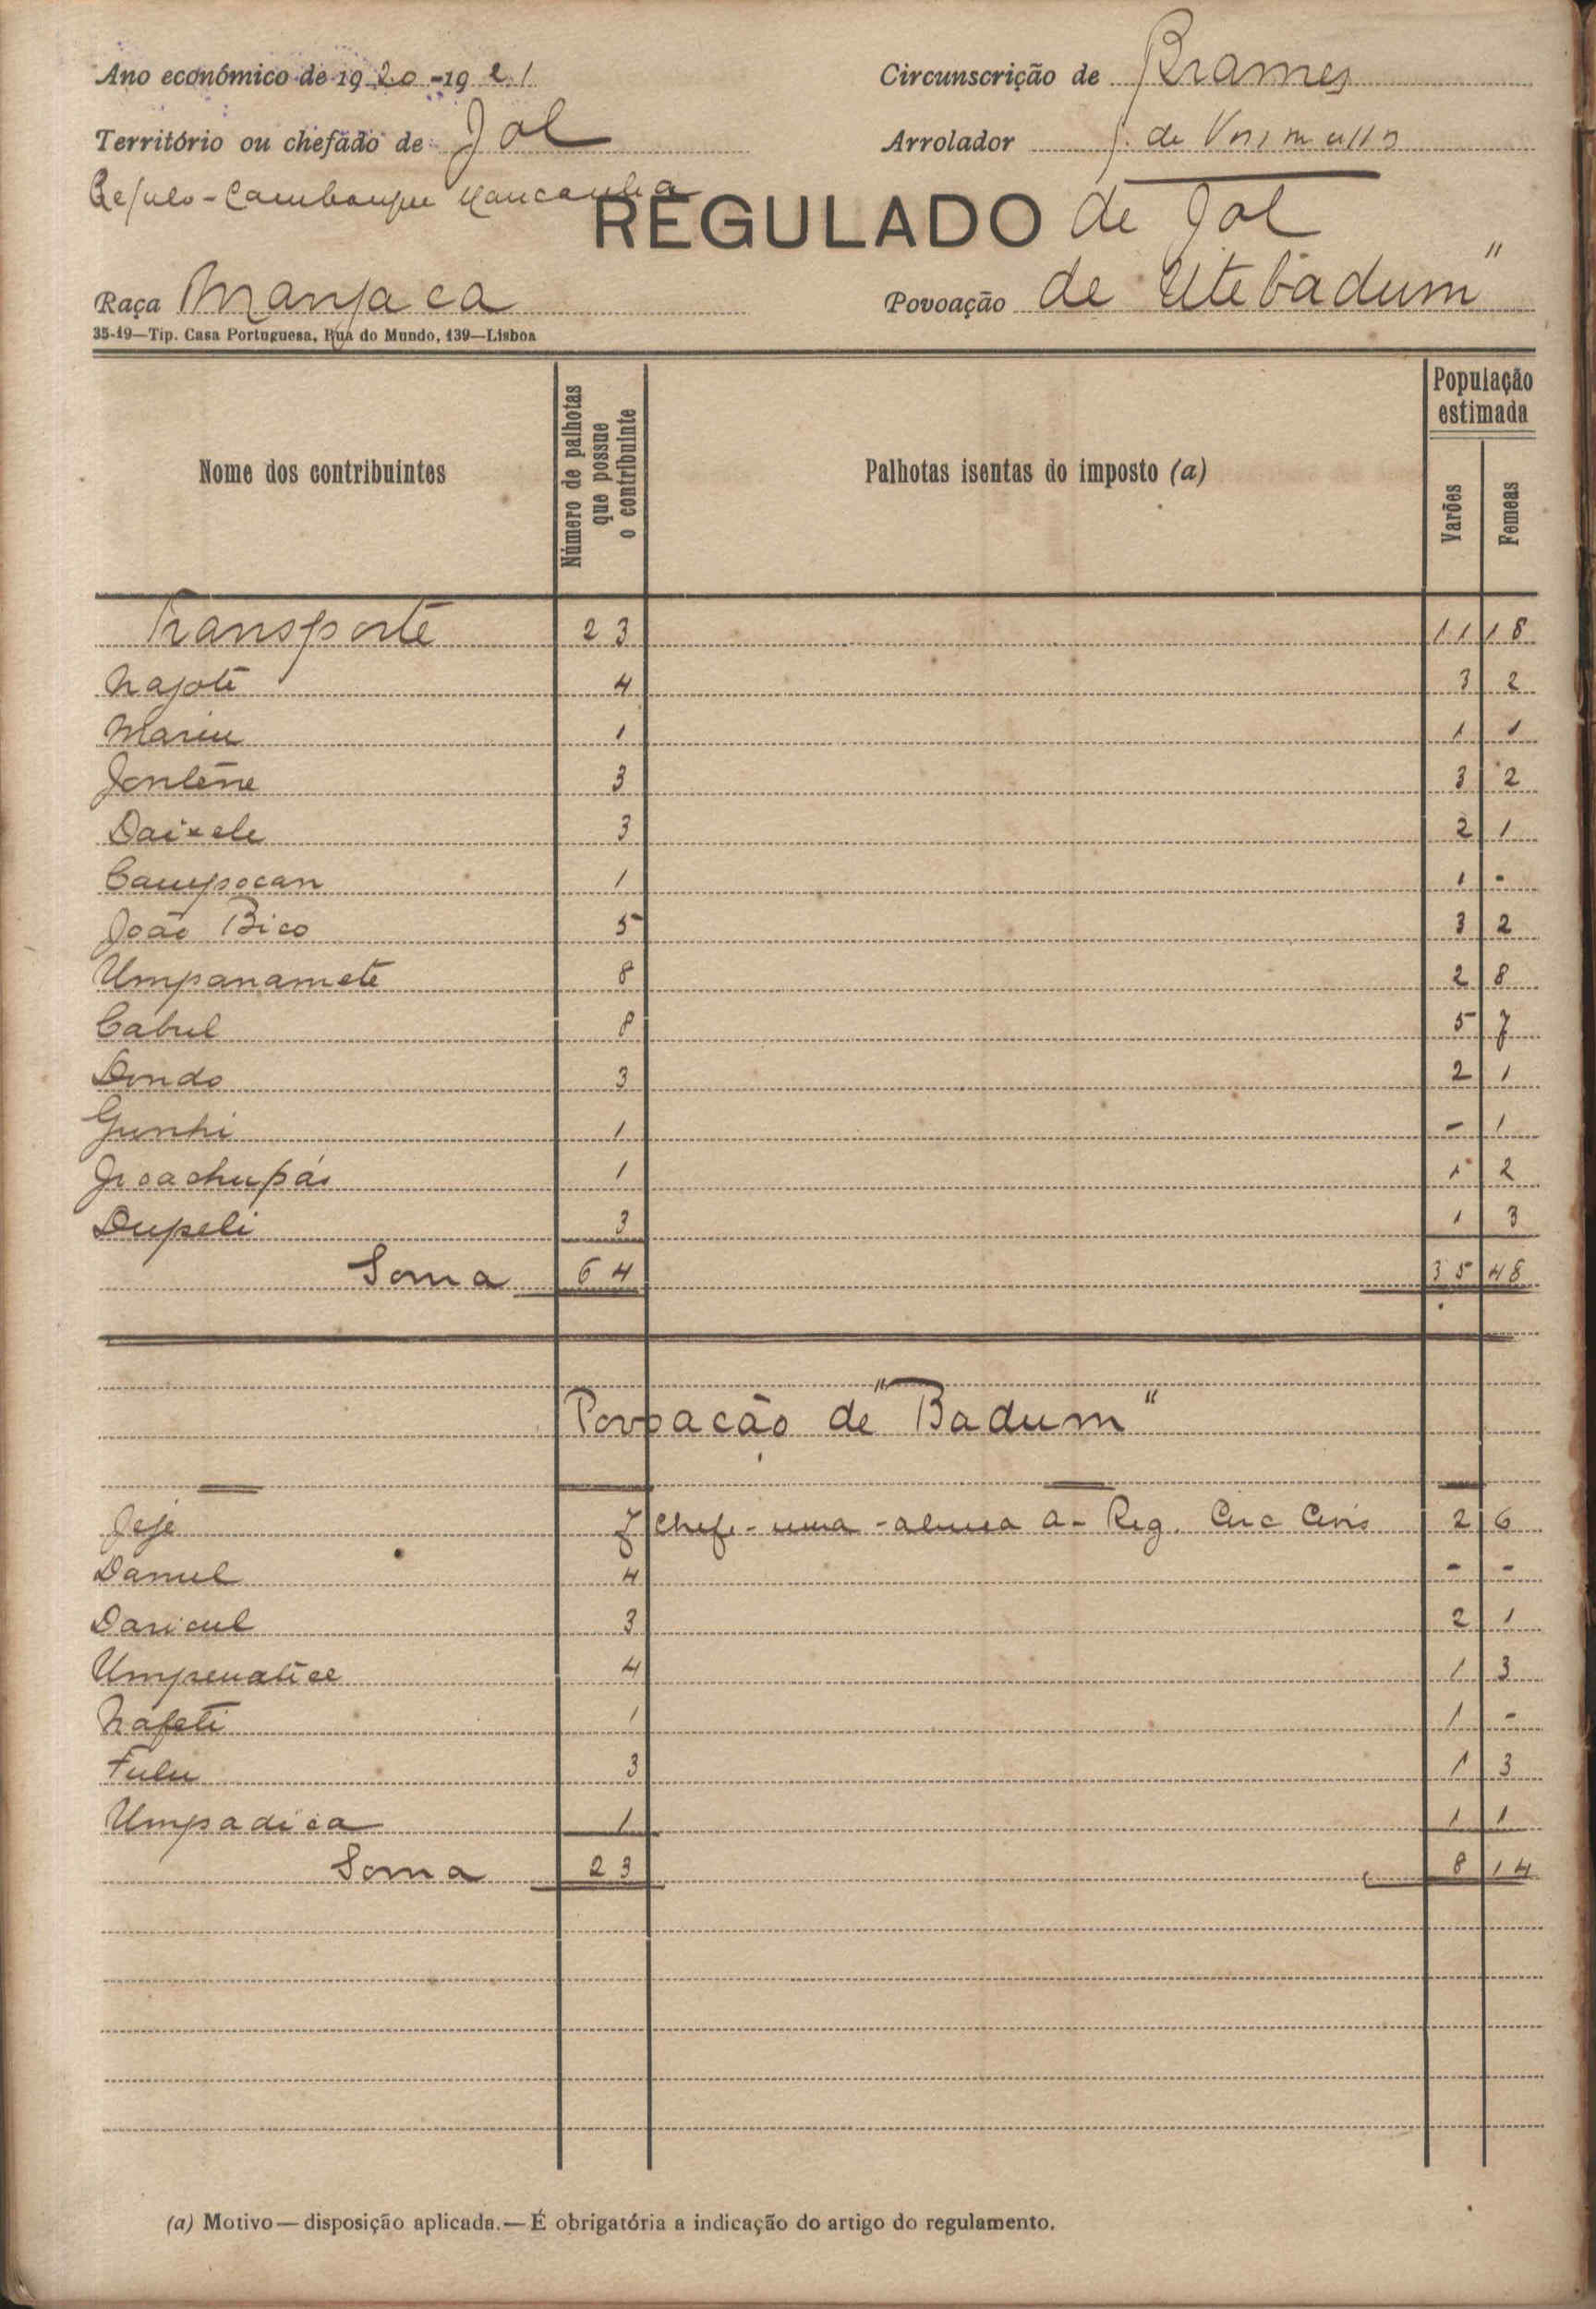 Ano económico de 1920-1921
Circunscrição de Brames
Território ou chefado de Jol
Arrolador J. de
Regulo - Mancanha
REGULADO de Jol
Raça Manjaca
Povoação de Utebadum"
35-19—Tip. Casa Portuguesa, Rua do Mundo, 139—Lisboa
Nome dos contribuintes
Número de palhotas que possue o contribuinte
Palhotas isentas do imposto (a)
População estimada
Varões
Femeas
Transporte 23 11 18
Najote 4 3 2
Mariu 1 1 1
Jonléne 3 3 2
Daixele 3 2 1
Campocan 1 1 -
João Bico 5 3 2
Umpanamete 8 2 8
Cabul 8 5 7
Dondo 3 2 1
Gunhi 1 - 1
1 1 2
Dupeli 3 1 3
Soma 64 35 48
Povoacão de "Badum"
Jeje 7 Chefe - uma - alinea a - Reg. Circ Civis 2 6
Daniel 4 - -
Daricul 3 2 1
4 1 3
Nafeti 1 1 -
Fulu 3 1 3
Umpadica 1 1 1
Soma 23 8 14
(a) Motivo — disposição aplicada. — É obrigatória a indicação do artigo do regulamento.